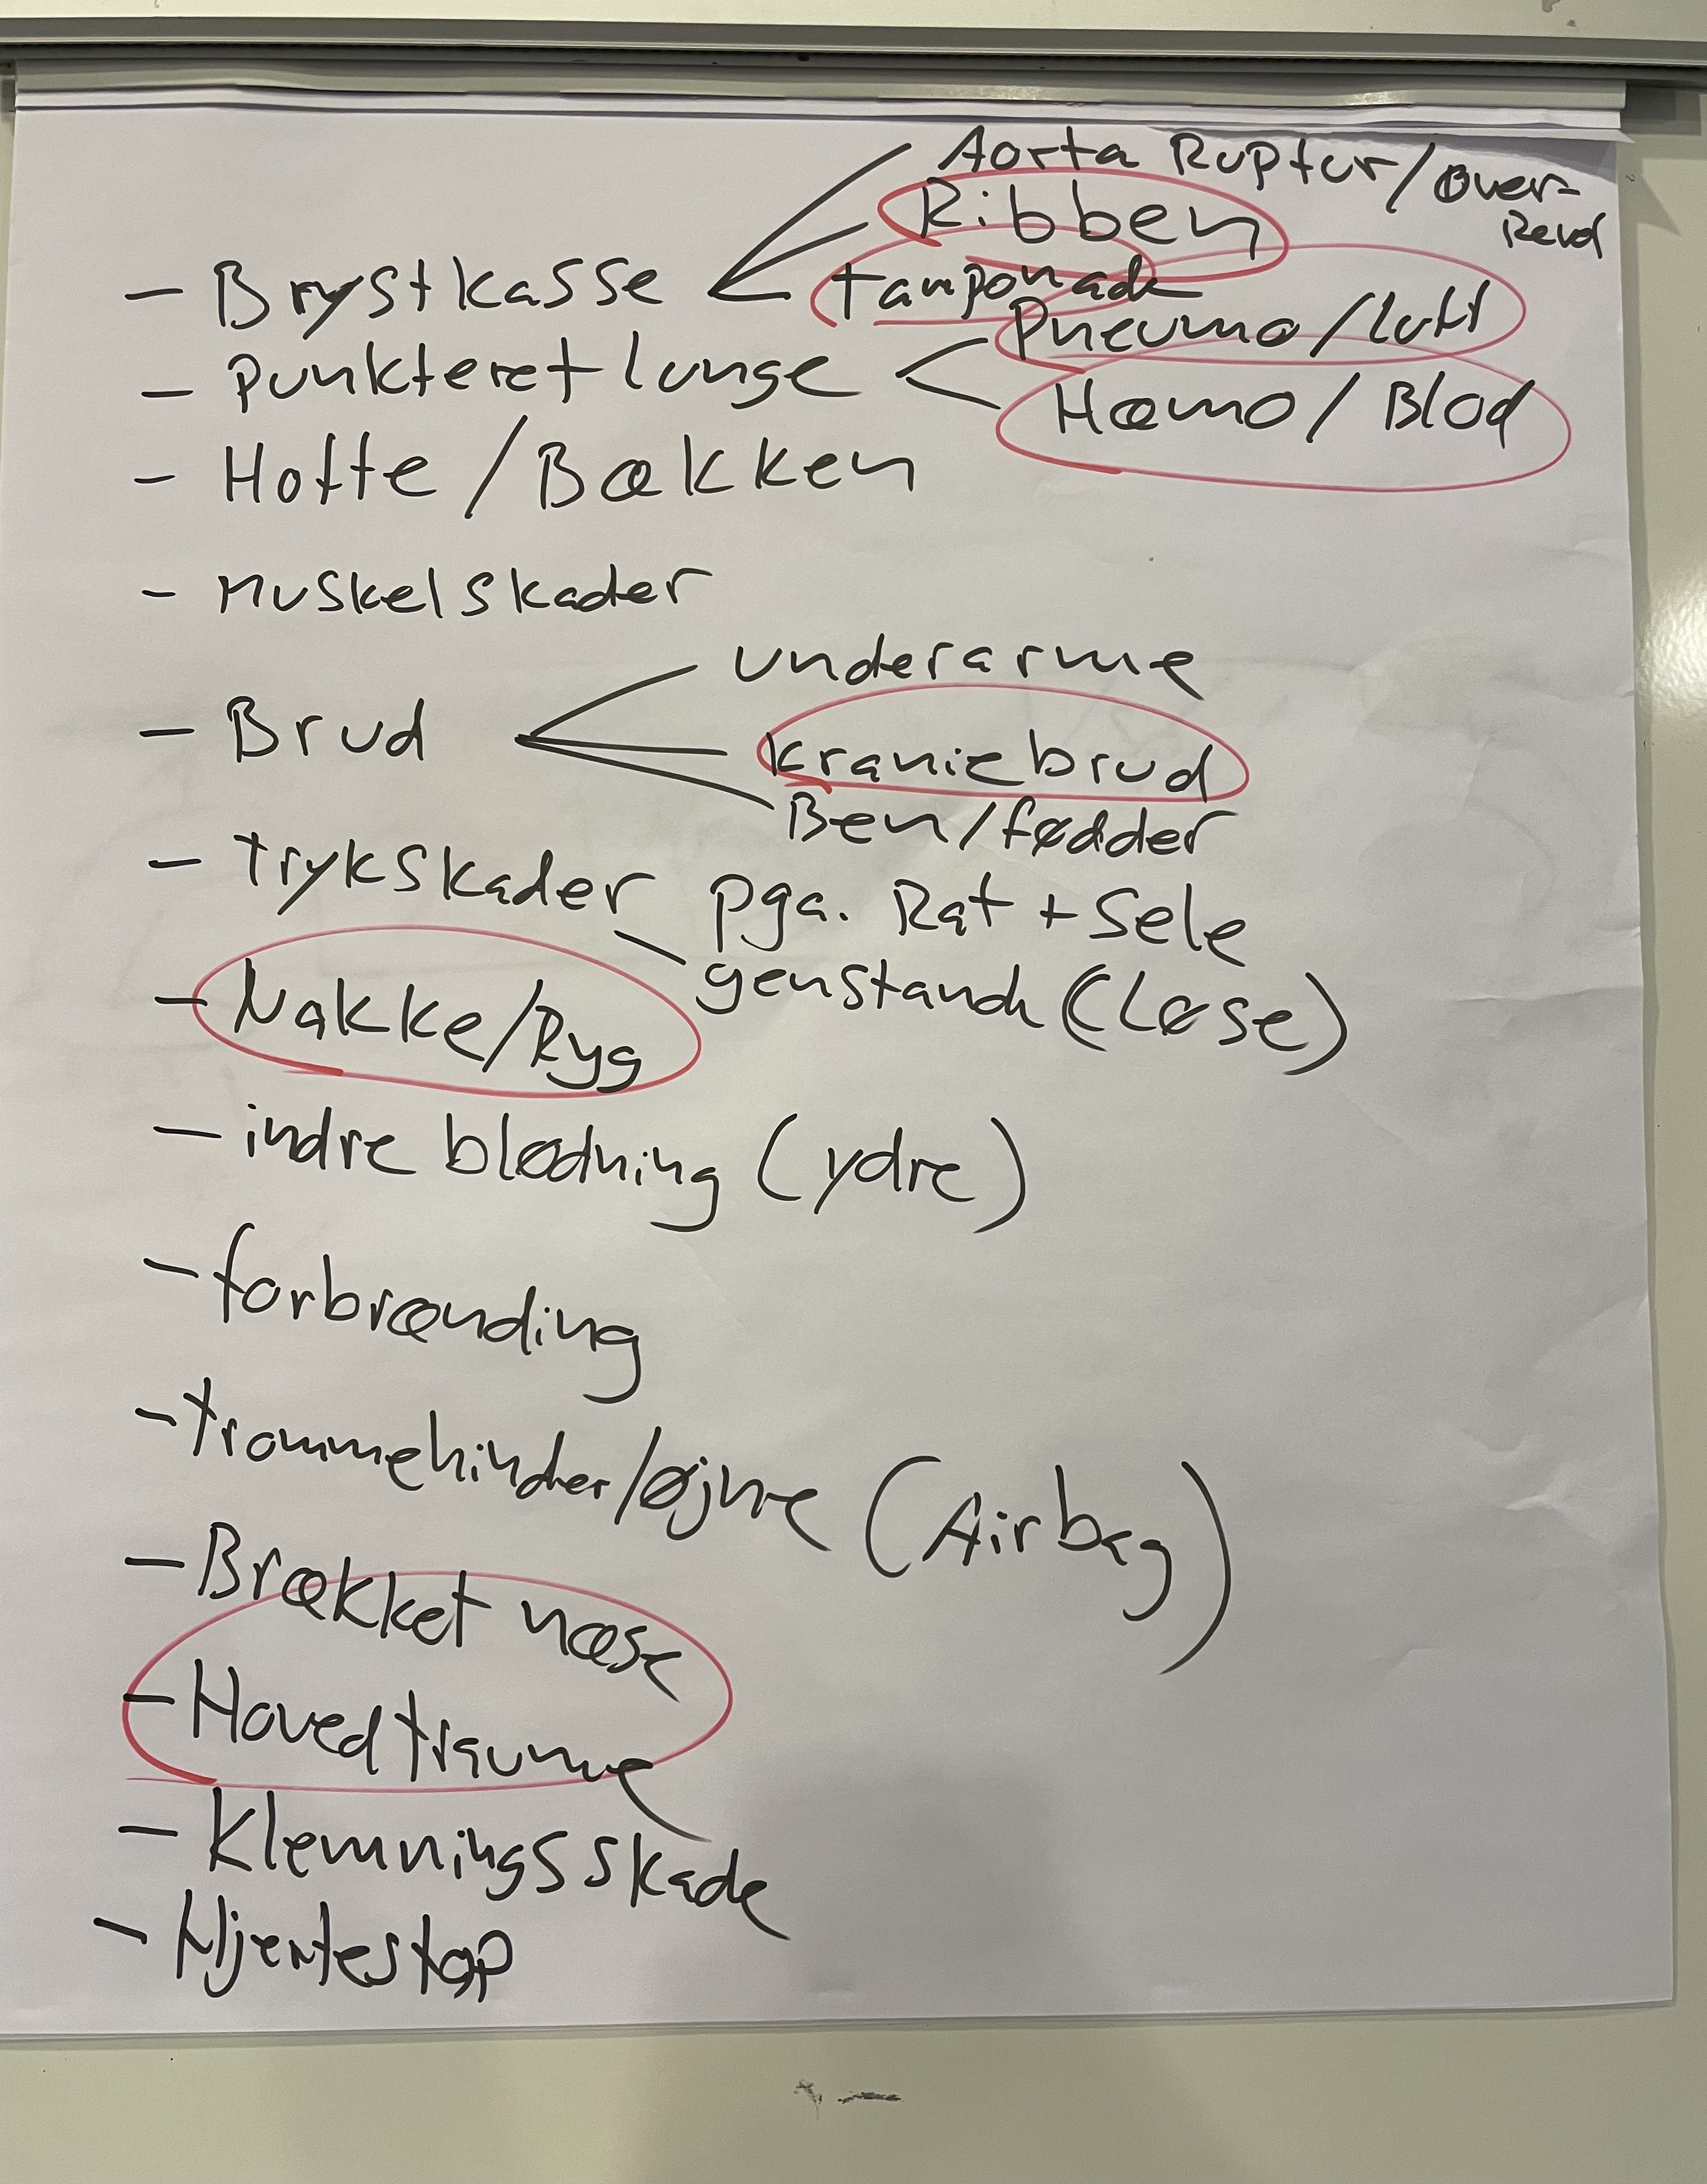 Aorta Ruptur/over-
Revd
Ribben
- Brystkasse
tamponade
Pneumo/luft
- Punkteret lunge
Hæmo/Blod
- Hofte/Bækken
- Muskelskader
underarme
- Brud
kraniebrud
Ben/fødder
- Trykskader pga. Rat + Sele
genstande (Løse)
- Nakke/Ryg
- indre blødning (ydre)
- forbrænding
- trommehinder/øjne (Airbag)
- Brækket næse
- Hovedtraume
- Klemningsskade
- Hjertestop